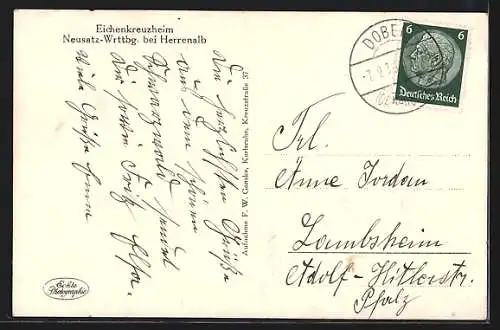 Eichenkreuzheim
Neusatz-Wrttbg. bei Herrenalb
Die herzlichsten Grüße
aus dem schönen
Schwarzwald sendet
Dir sowie Fritz Elsa.
Viele Grüße Emma
Aufnahme F. W. Gomke, Karlsruhe, Kreuzstraße 37
Echte
Photographie
DOBEL
6 6
Deutsches Reich
Frl.
Anne Jordan
Lambsheim
Adolf-Hitlerstr.
Pfalz